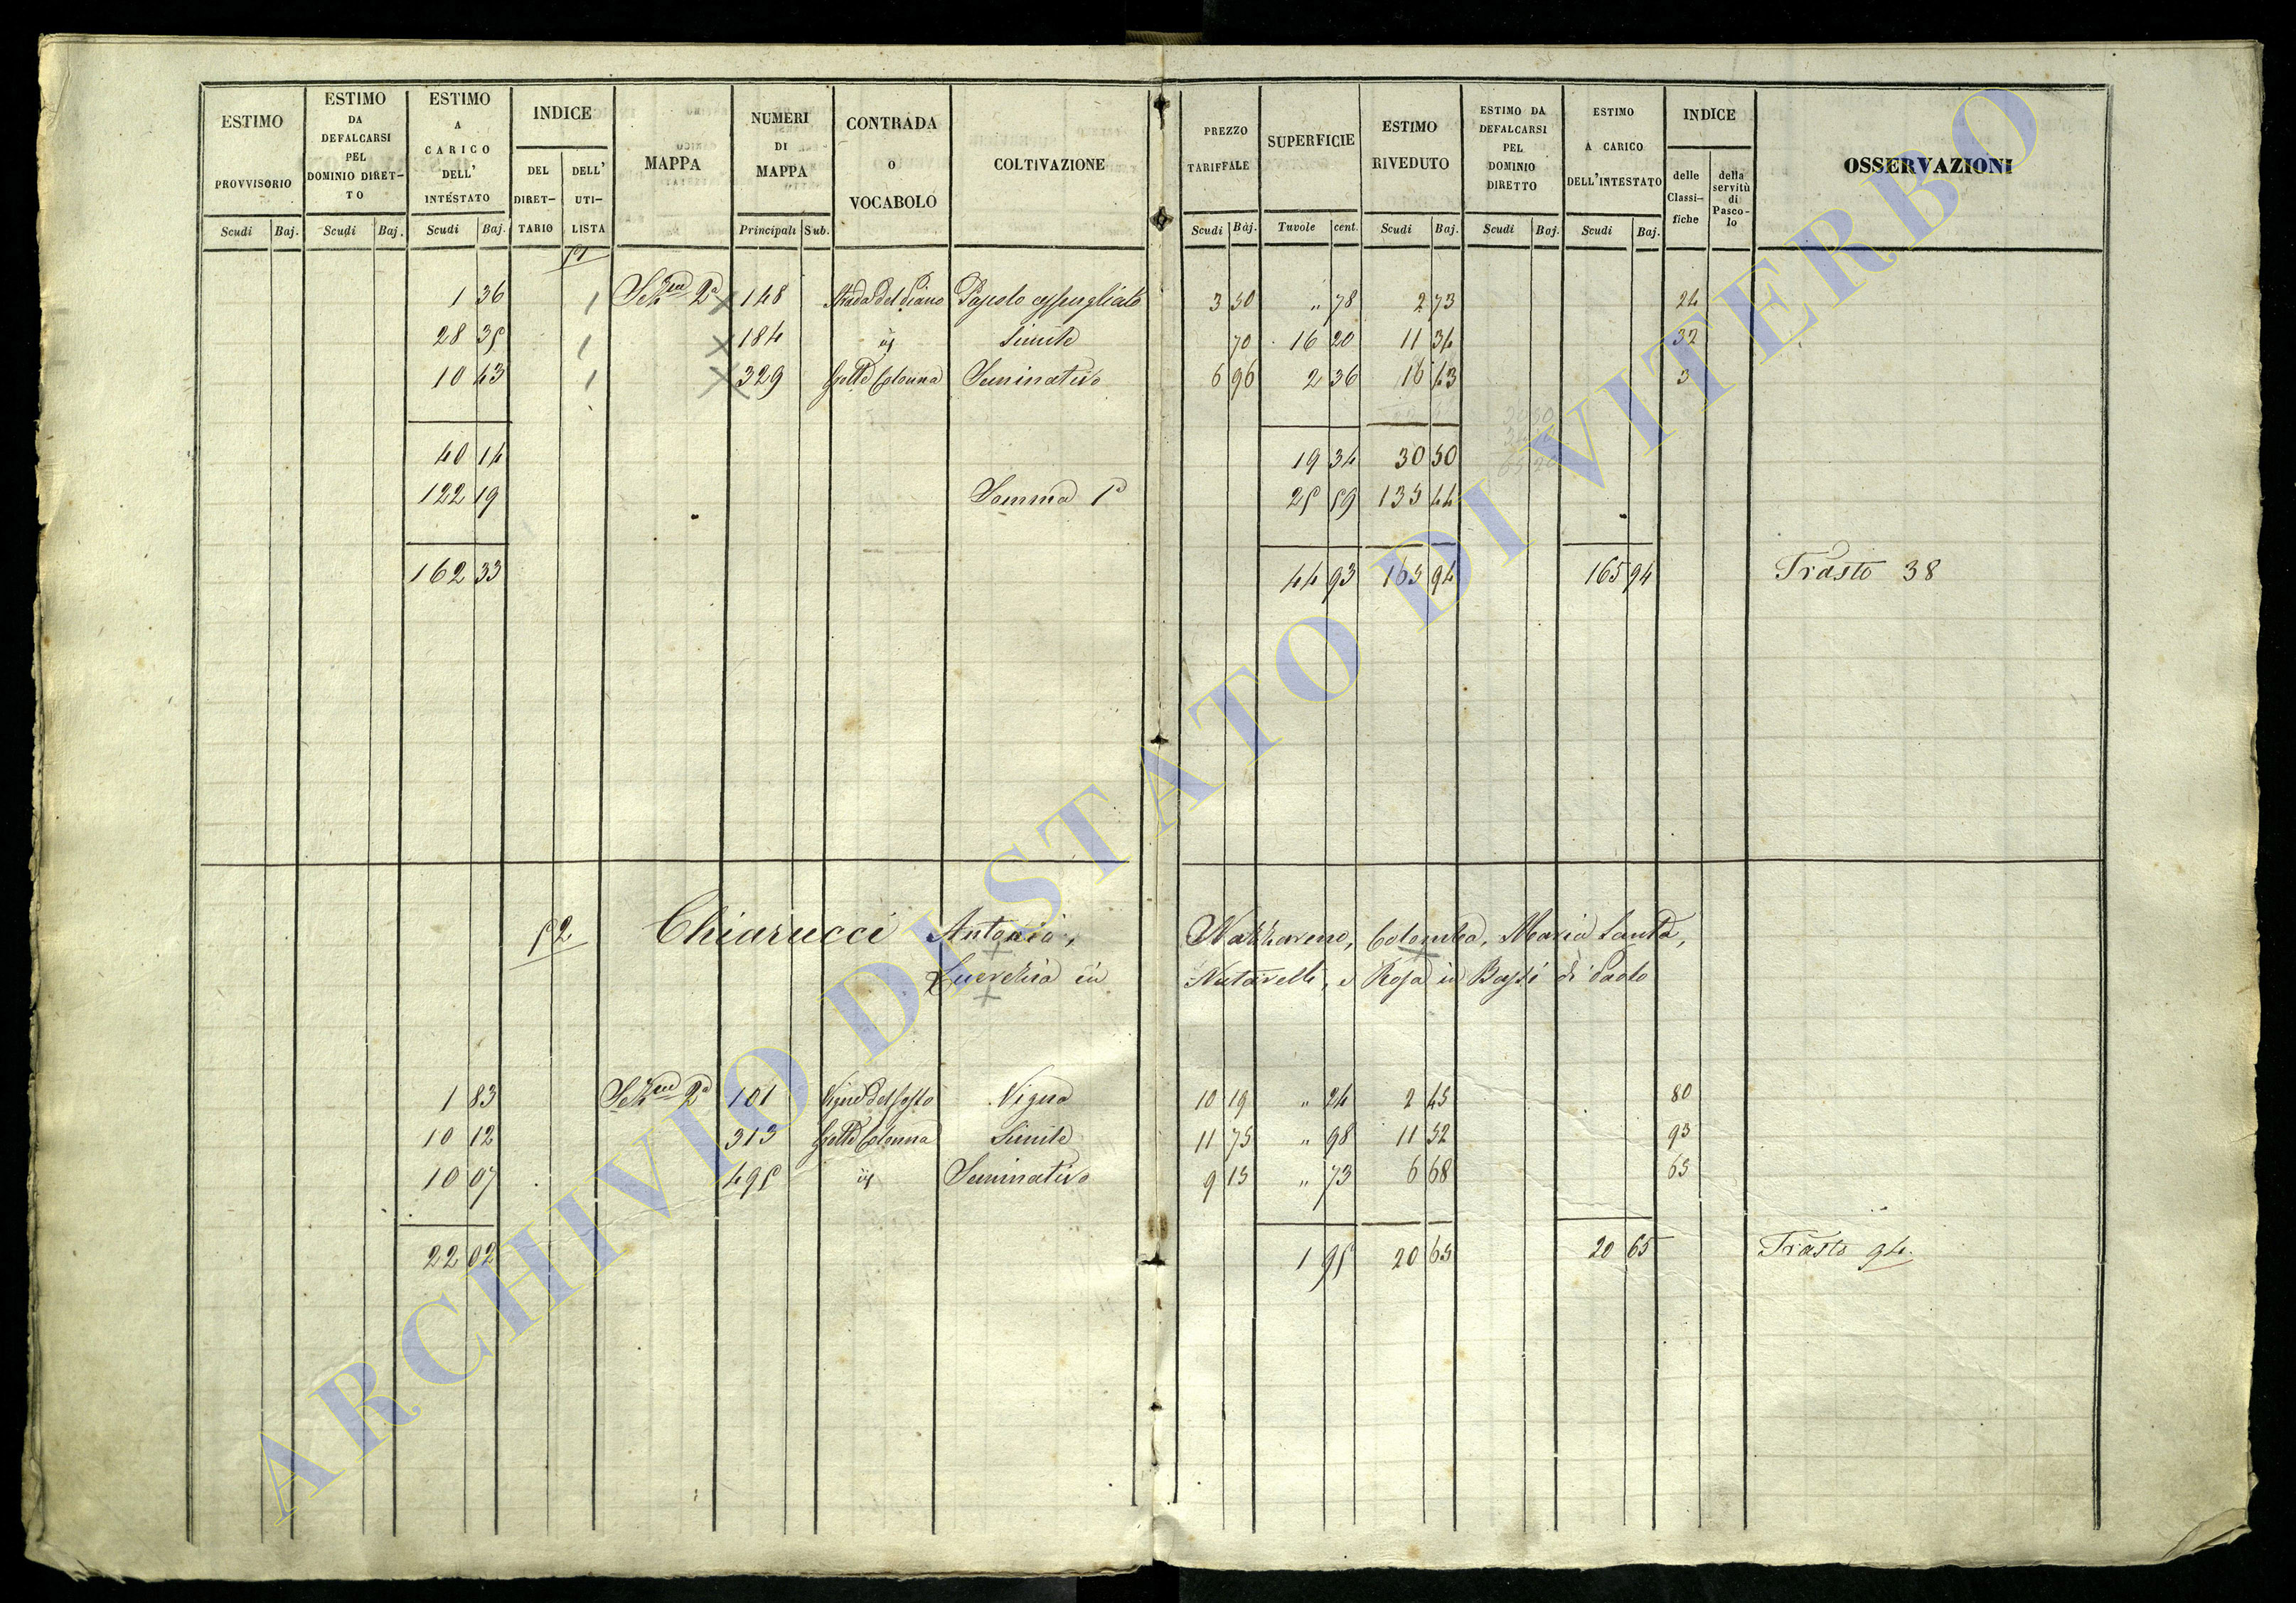 ESTIMO PROVVISORIO
ESTIMO DA DEFALCARSI PEL DOMINIO DIRET-TO
ESTIMO A CARICO DELL' INTESTATO
INDICE
DEL DIRET-TARIO
DELL' UTI-LISTA
MAPPA
NUMERI DI MAPPA
CONTRADA O VOCABOLO
COLTIVAZIONE
PREZZO TARIFFALE
SUPERFICIE
ESTIMO RIVEDUTO
ESTIMO DA DEFALCARSI PEL DOMINIO DIRETTO
ESTIMO A CARICO DELL'INTESTATO
INDICE
delle Classi-fiche
della servitù di Pasco-lo
OSSERVAZIONI
Scudi Baj. Scudi Baj. Scudi Baj. Principali Sub. Scudi Baj. Tavole cent. Scudi Baj. Scudi Baj. Scudi Baj.
51
1 36 Sez.ne 2a 148 Strada del Piano Pascolo cespugliato 3 50 " 78 2 73 24
28 35 184 id Simile 70 16 20 11 34 32
10 43 329 Grotte Colonna Seminativo 6 96 2 36 16 43 3
40 14 19 34 30 50
122 19 Somma Pa 25 59 135 44
162 33 44 93 165 94 165 94 Trasto 38
52 Chiarucci Antonia, Nazzareno, Colomba, Maria Santa,
Lucrezia in e Rosa in Bassi di Paolo
1 83 Sez.ne 2a 101 Vigne del Sasso Vigna 10 19 " 24 2 45 80
10 12 313 Grotte Colonna Simile 11 75 " 98 11 52 93
10 07 495 id Seminativo 9 15 " 73 6 68 65
22 02 1 95 20 65 20 65 Trasto 94.
ARCHIVIO DI STATO DI VITERBO